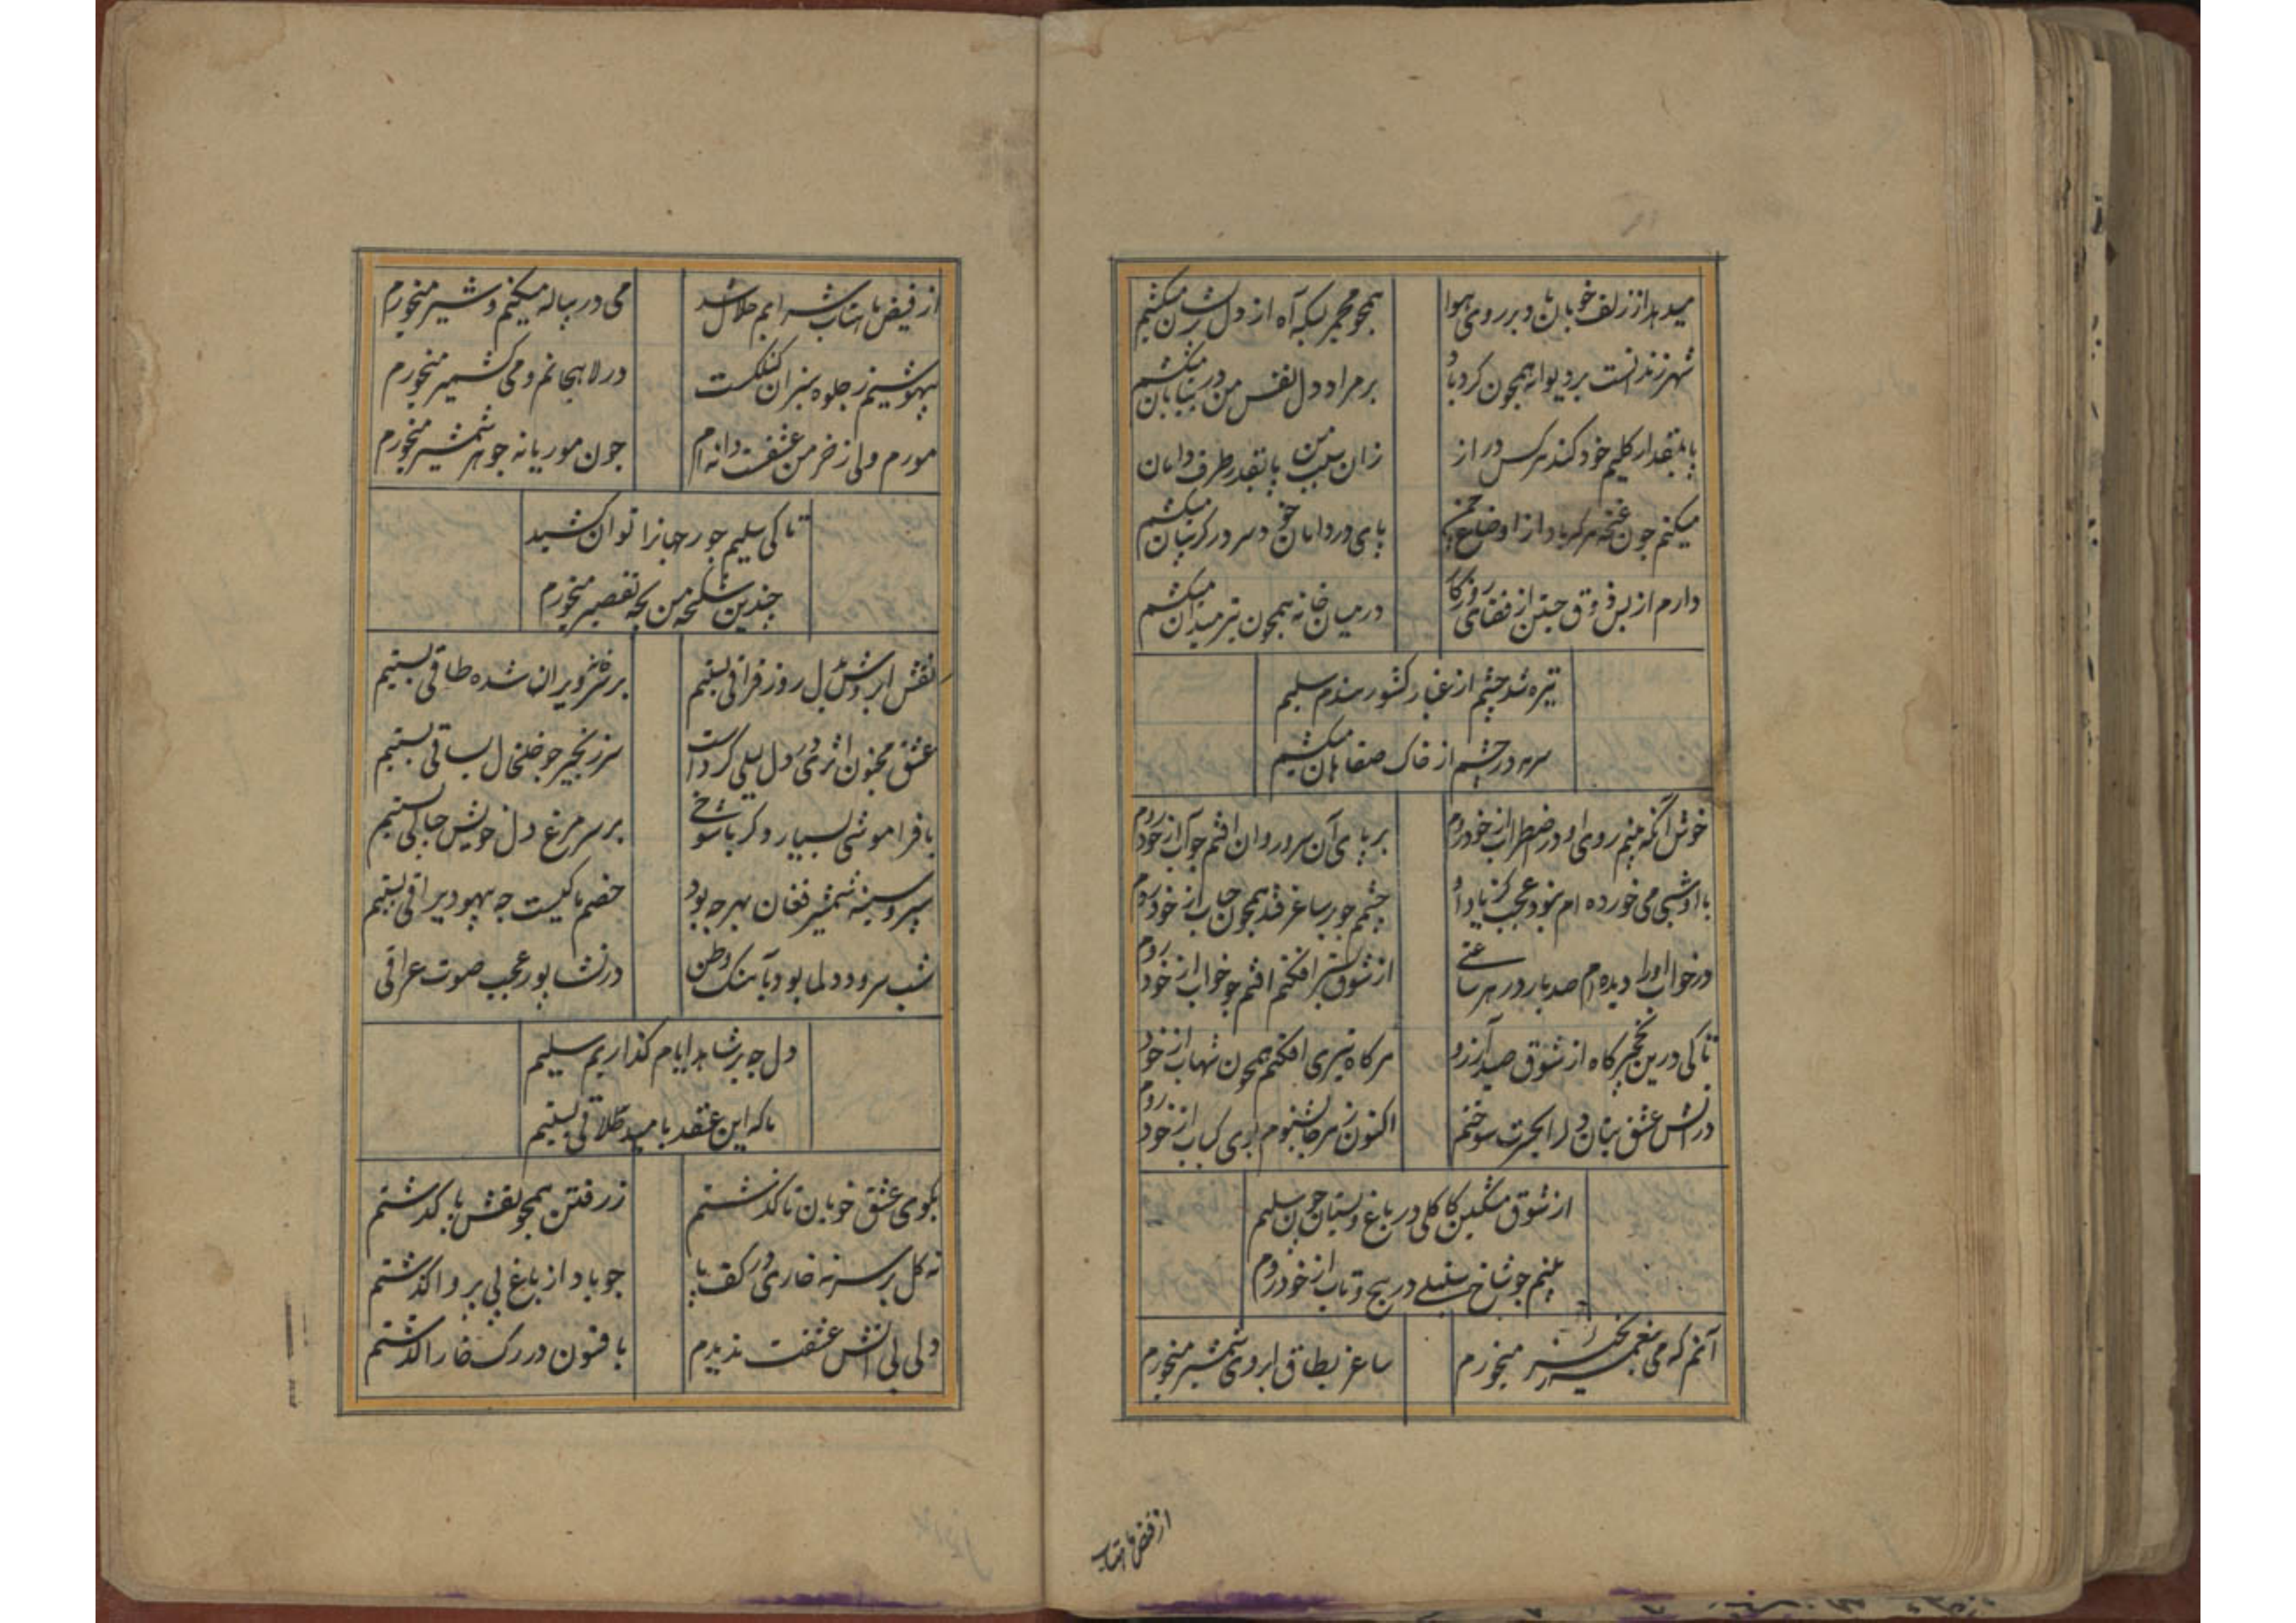 میدهد از زلف خوبان تا دبر روی هوا
همچو مجمر بسکه آه از دل پریشان میکشم
شهر زندانست بر دیوانه همچون کردباد
بر مراد دل نفس من در بیابان میکشم
پا بمقدار کلیم خود کند هر کس دراز
زان سبب من پا بقدر طرف دامان میکشم
میکنم جون غنجه هر که یاد از اوضاع جمن
پای در دامان خود سر در کریبان میکشم
دارم از بس ذوق جستن از قفای روزکار
در میان خانه همچون تیر میدان میکشم
تیره شد جشم از غبار کشور هندم سلیم
سرمه در جشم از خاک صفاهان میکشم
خوش آنکه بینم روی او در اضطراب از خود روم
بر پای آن سرو روان افتم جو آب از خود روم
با او شبی می خورده ام نبود عجب کز یاد او
جشمم جو بر ساغر فتد همچون حباب از خود روم
در خواب او را دیده ام صد بار در هر ساعتی
از شوق بستر افکنم افتم جو خواب از خود روم
تا کی درین نخجیر کاه از شوق صید آرزو
هر کاه تیری افکنم همچون شهاب از خود
در آتش عشق بتان دل را بحسرت سوختم
اکنون ز هر جا بشنوم بوی کباب از خود روم
از شوق مشکین کاکلی در باغ و بستان جون سلیم
بینم جو شاخ سنبلی در پیج و تاب از خود روم
آنم که می بنغمه زنجیر میخورم
ساغر بطاق ابروی شمشیر میخورم
از فیض ماهتاب
از فیض ماهتاب شرابم حلال شد
می در پیاله میکنم و شیر میخورم
بیهوشیم ز جلوه سبزان کلکست
در لاهیجانم و می کشمیر میخورم
مورم ولی ز خرمن عشقت دانه ام
جون موریانه جوهر شمشیر میخورم
تا کی سلیم جور جهانرا توان کشید
جندین شکنجه من بجه تقصیر میخورم
نقش ابروش بدل روز فراقی بستیم
بر سر منظر ویران شده طاقی بستیم
عشق مجنون اثری در دل لیلی کرد است
سر زنجیر جو خلخال بساقی بستیم
با فراموشی بسیار و کر با شوخی
بر سر مرغ دل خویش جناقی بستیم
سپر و سینه شمشیر فغان بهر جه بود
خصم ما کیست جه بیهوده یراقی بستیم
شب سرود دلما بود بآهنک وطن
در نشابور عجب صوت عراقی
دل جه بر شاهد ایام کذاریم سلیم
ما که این عقد بامید طلاقی بستیم
بکوی عشق خوبان تا کذشتم
ز رفتن همجو نقش پا کذشتم
نه کل بر سر نه خاری در کف پا
جو باد از باغ بی پروا کذشتم
ولی بی آتش عشقت ندیدم
بافسون در رک خارا کذشتم